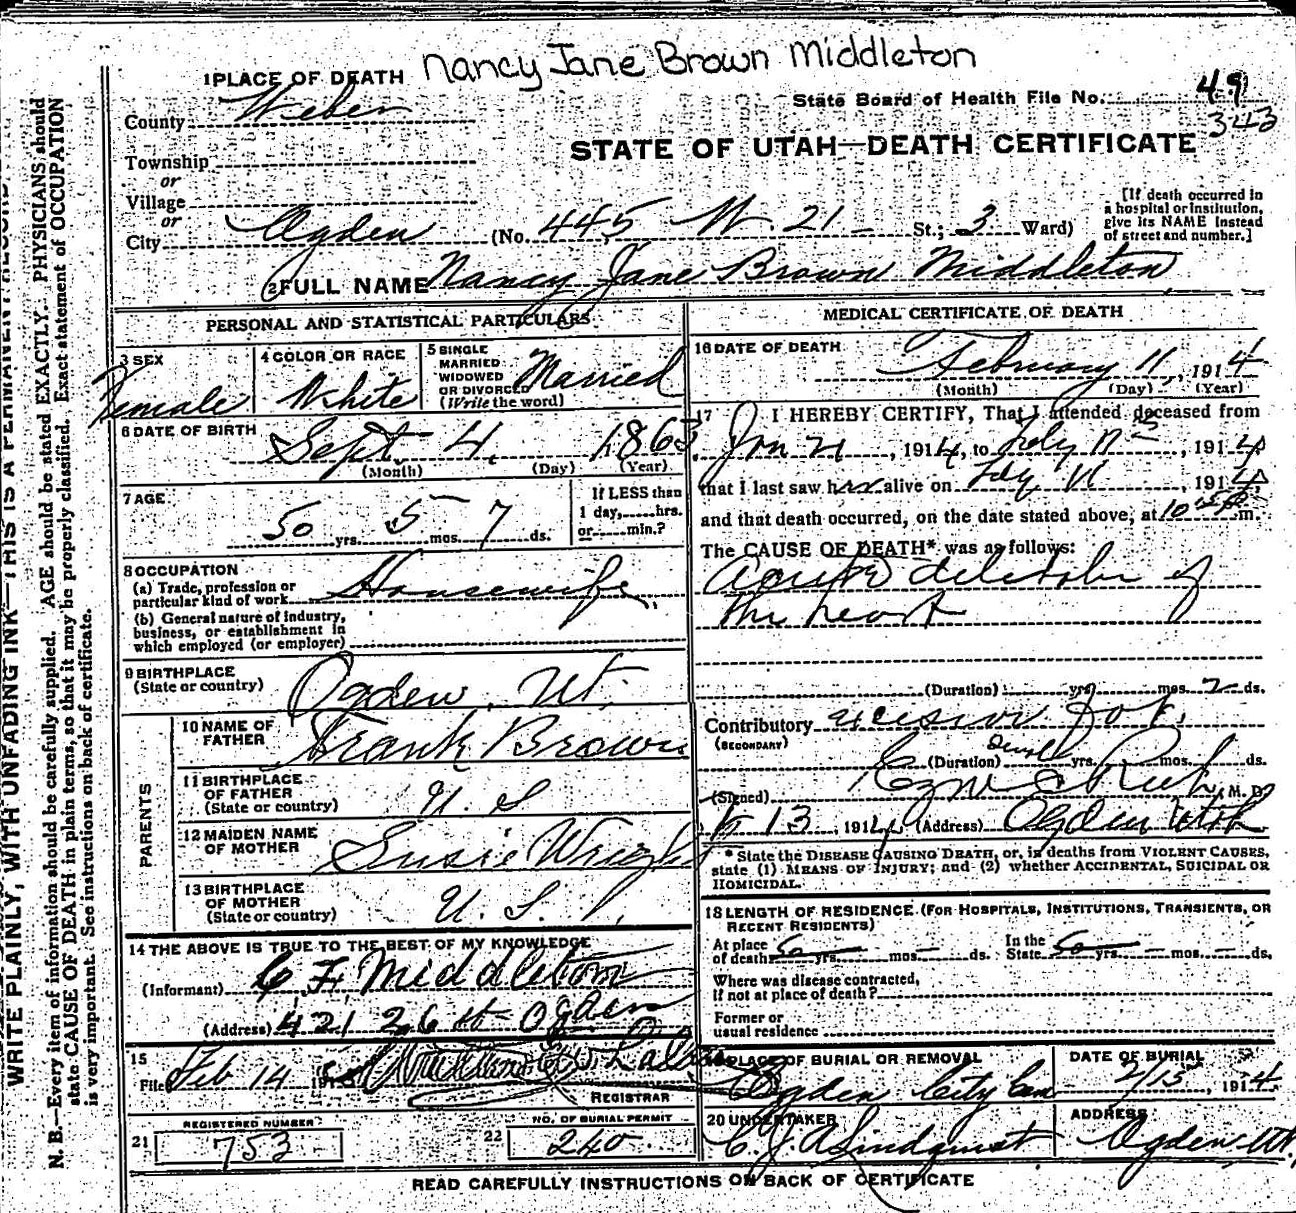 Nancy Jane Brown Middleton
1 PLACE OF DEATH
State Board of Health File No. 49
343
County Weber
STATE OF UTAH—DEATH CERTIFICATE
Township
or
Village
or
City Ogden (No. 445 W. 21 St.; 3 Ward)
[If death occurred in
a hospital or institution,
give its NAME instead
of street and number.]
2 FULL NAME Nancy Jane Brown Middleton
PERSONAL AND STATISTICAL PARTICULARS
3 SEX
Female
4 COLOR OR RACE
White
5 SINGLE
MARRIED
WIDOWED
OR DIVORCED
(Write the word)
Married
6 DATE OF BIRTH
Sept. 4, 1863
(Month) (Day) (Year)
7 AGE
50 yrs. 5 mos. 7 ds.
If LESS than
1 day, hrs.
or min.?
8 OCCUPATION
(a) Trade, profession or
particular kind of work Housewife
(b) General nature of industry,
business, or establishment in
which employed (or employer)
9 BIRTHPLACE
(State or country)
Ogden, Ut.
PARENTS
10 NAME OF
FATHER
Frank Brown
11 BIRTHPLACE
OF FATHER
(State or country)
U. S
12 MAIDEN NAME
OF MOTHER
Susie Wright
13 BIRTHPLACE
OF MOTHER
(State or country)
U. S.
14 THE ABOVE IS TRUE TO THE BEST OF MY KNOWLEDGE
(Informant) C. F. Middleton
(Address) 421 26 st Ogden
15
Filed Feb 14 191
REGISTRAR
21
REGISTERED NUMBER
753
22
NO. OF BURIAL PERMIT
240
MEDICAL CERTIFICATE OF DEATH
16 DATE OF DEATH
February 11, 1914
(Month) (Day) (Year)
17 I HEREBY CERTIFY, That I attended deceased from
Jan 21, 1914, to Feby 11th, 1914
that I last saw her alive on Feby 11, 1914,
and that death occurred, on the date stated above, at 10 m.
The CAUSE OF DEATH* was as follows:
acute of
the heart
(Duration) yrs. mos. 2 ds.
Contributory
(SECONDARY)
(Duration) yrs. mos. ds.
(Signed) , M. D.
13, 1914 (Address) Ogden Utah
* State the DISEASE CAUSING DEATH, or, in deaths from VIOLENT CAUSES,
state (1) MEANS OF INJURY; and (2) whether ACCIDENTAL, SUICIDAL OR
HOMICIDAL.
18 LENGTH OF RESIDENCE (FOR HOSPITALS, INSTITUTIONS, TRANSIENTS, OR
RECENT RESIDENTS)
At place
of death yrs. mos. ds.
In the
State 50 yrs. mos. ds.
Where was disease contracted,
if not at place of death?
Former or
usual residence
PLACE OF BURIAL OR REMOVAL
Ogden City Cem
DATE OF BURIAL
2/15, 1914
20 UNDERTAKER
Lindquist
ADDRESS
Ogden Ut.
READ CAREFULLY INSTRUCTIONS ON BACK OF CERTIFICATE
WRITE PLAINLY, WITH UNFADING INK—THIS IS A PERMANENT RECORD
N. B.—Every item of information should be carefully supplied. AGE should be stated EXACTLY. PHYSICIANS should
state CAUSE OF DEATH in plain terms, so that it may be properly classified. Exact statement of OCCUPATION
is very important. See instructions on back of certificate.